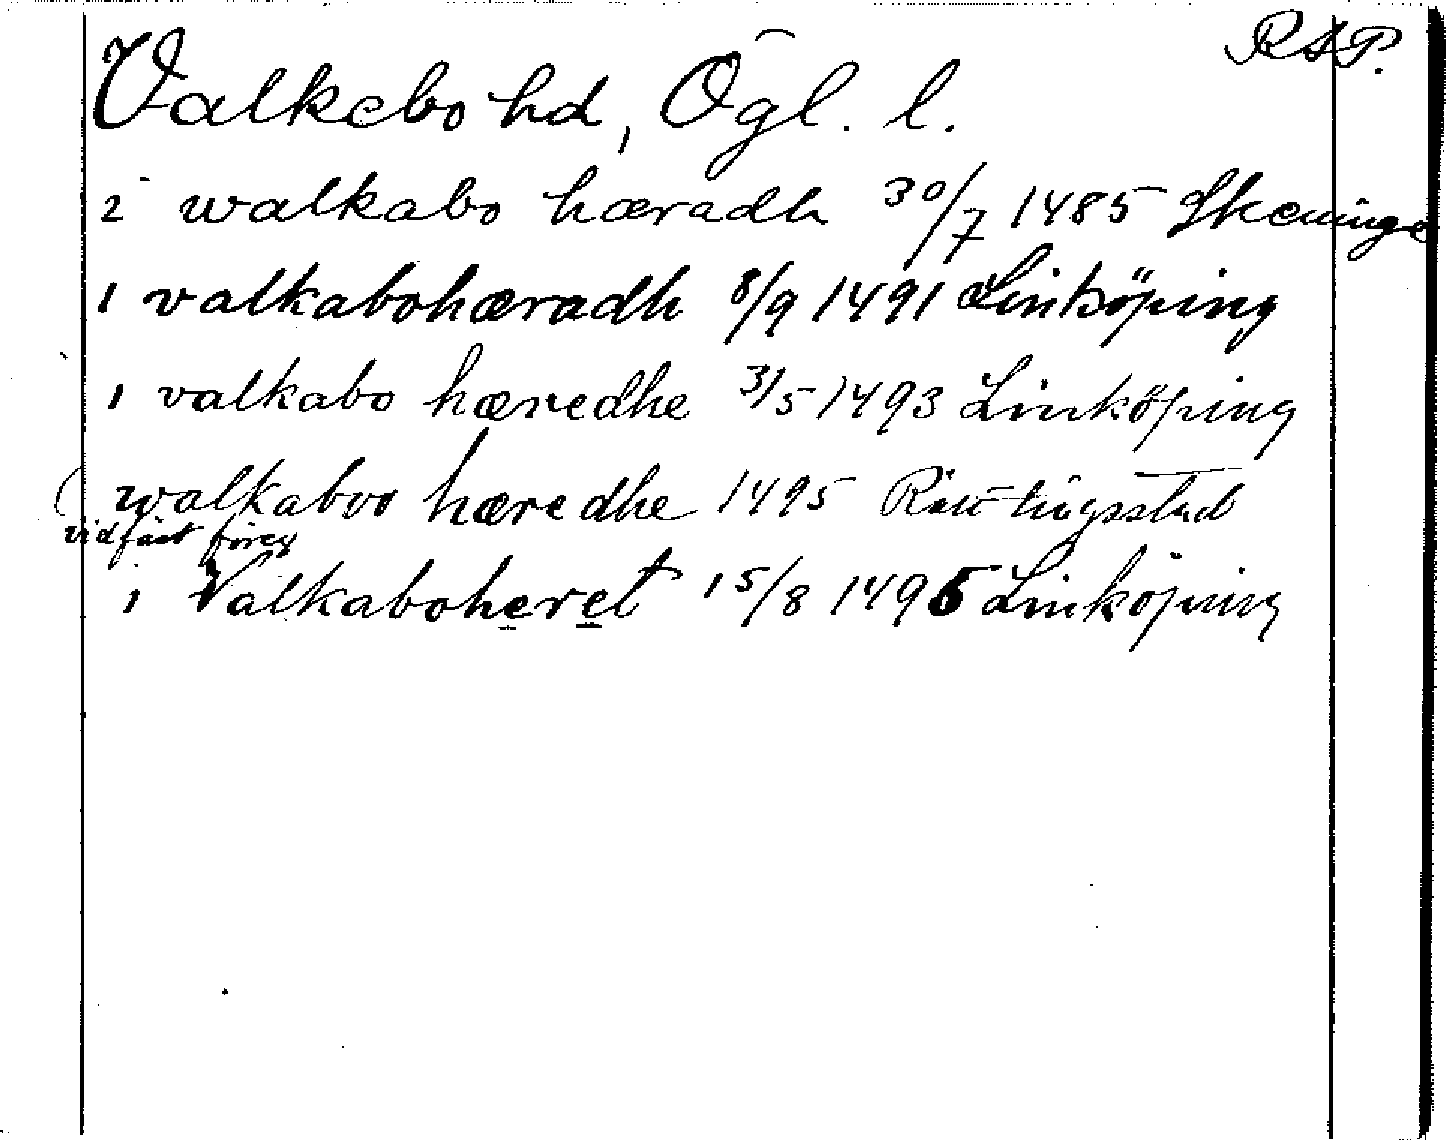 RAP.
Valkebo hd, Ögl. l.
2 walkabo hæradh 30/7 1485 Skeninge
1 valkabohæradh 8/9 1491 Linköping
1 valkabo hæredhe 3/5 1493 Linköping
( walkaboo hæredhe 1495
vidfäst
1 Valkaboheret 15/8 1496 Linköping